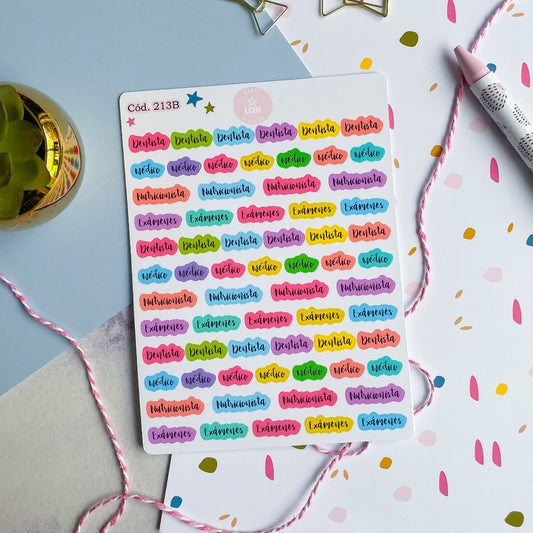 Cód. 213B
LQM
Dentista Dentista Dentista Dentista Dentista Dentista
Médico Médico Médico Médico Médico Médico Médico
Nutricionista Nutricionista Nutricionista Nutricionista
Exámenes Exámenes Exámenes Exámenes Exámenes
Dentista Dentista Dentista Dentista Dentista Dentista
Médico Médico Médico Médico Médico Médico Médico
Nutricionista Nutricionista Nutricionista Nutricionista
Exámenes Exámenes Exámenes Exámenes Exámenes
Dentista Dentista Dentista Dentista Dentista Dentista
Médico Médico Médico Médico Médico Médico Médico
Nutricionista Nutricionista Nutricionista Nutricionista
Exámenes Exámenes Exámenes Exámenes Exámenes